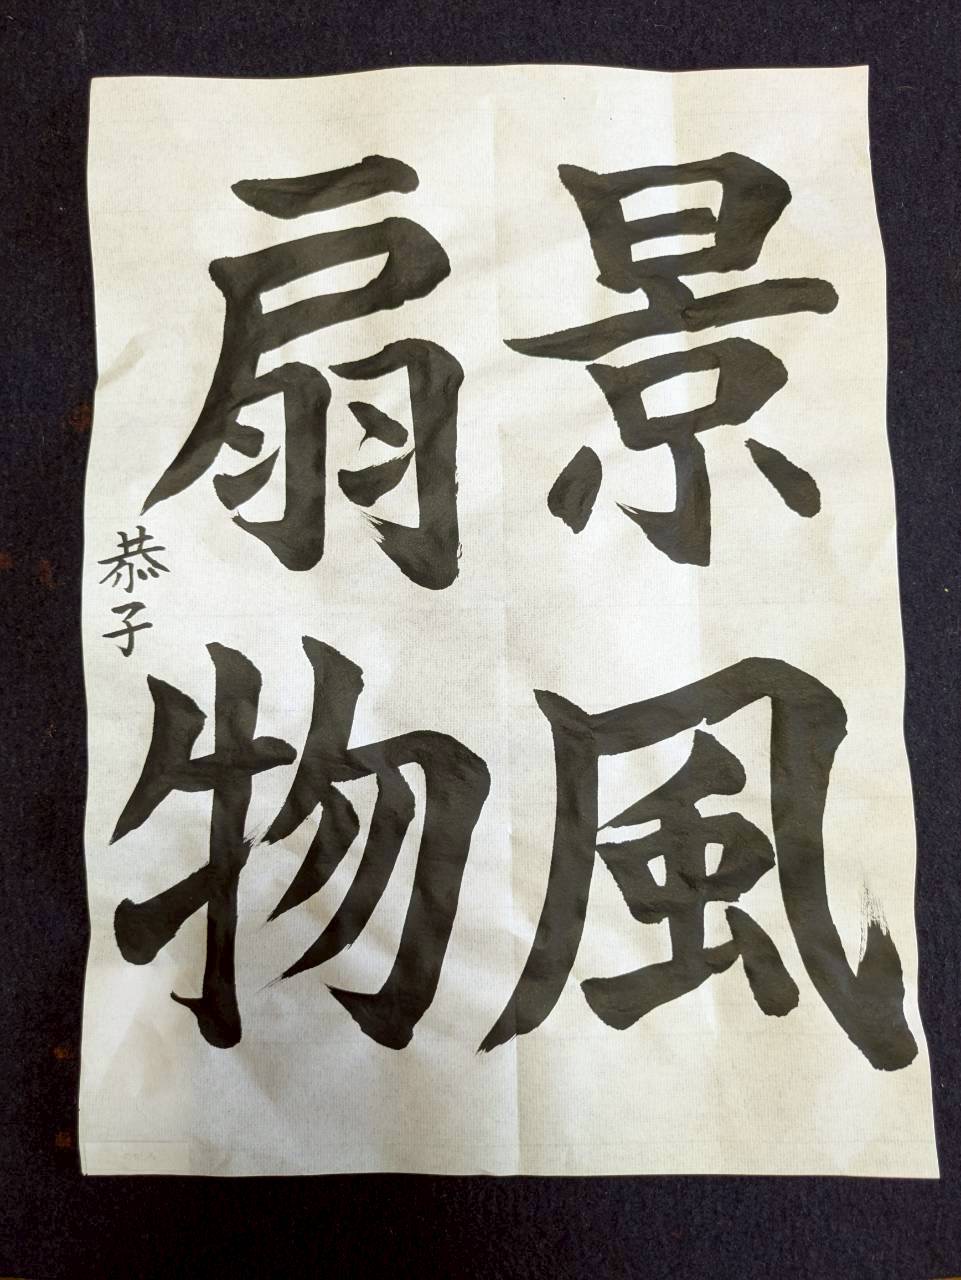 景風
扇物
恭子